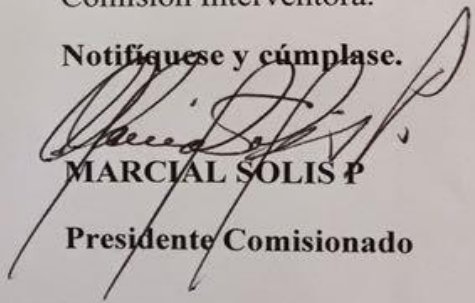 Comisión Interventora.
Notifíquese y cúmplase.
MARCIAL SOLIS P
Presidente Comisionado